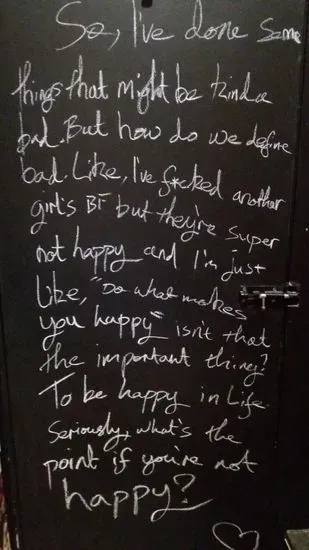 So, I've done some
things that might be kinda
bad. But how do we define
bad. Like, I've f*cked another
girl's BF but they're super
not happy and I'm just
like, "Do what makes
you happy" isn't that
the important thing?
To be happy in Life.
Seriously, what's the
point if you're not
happy?